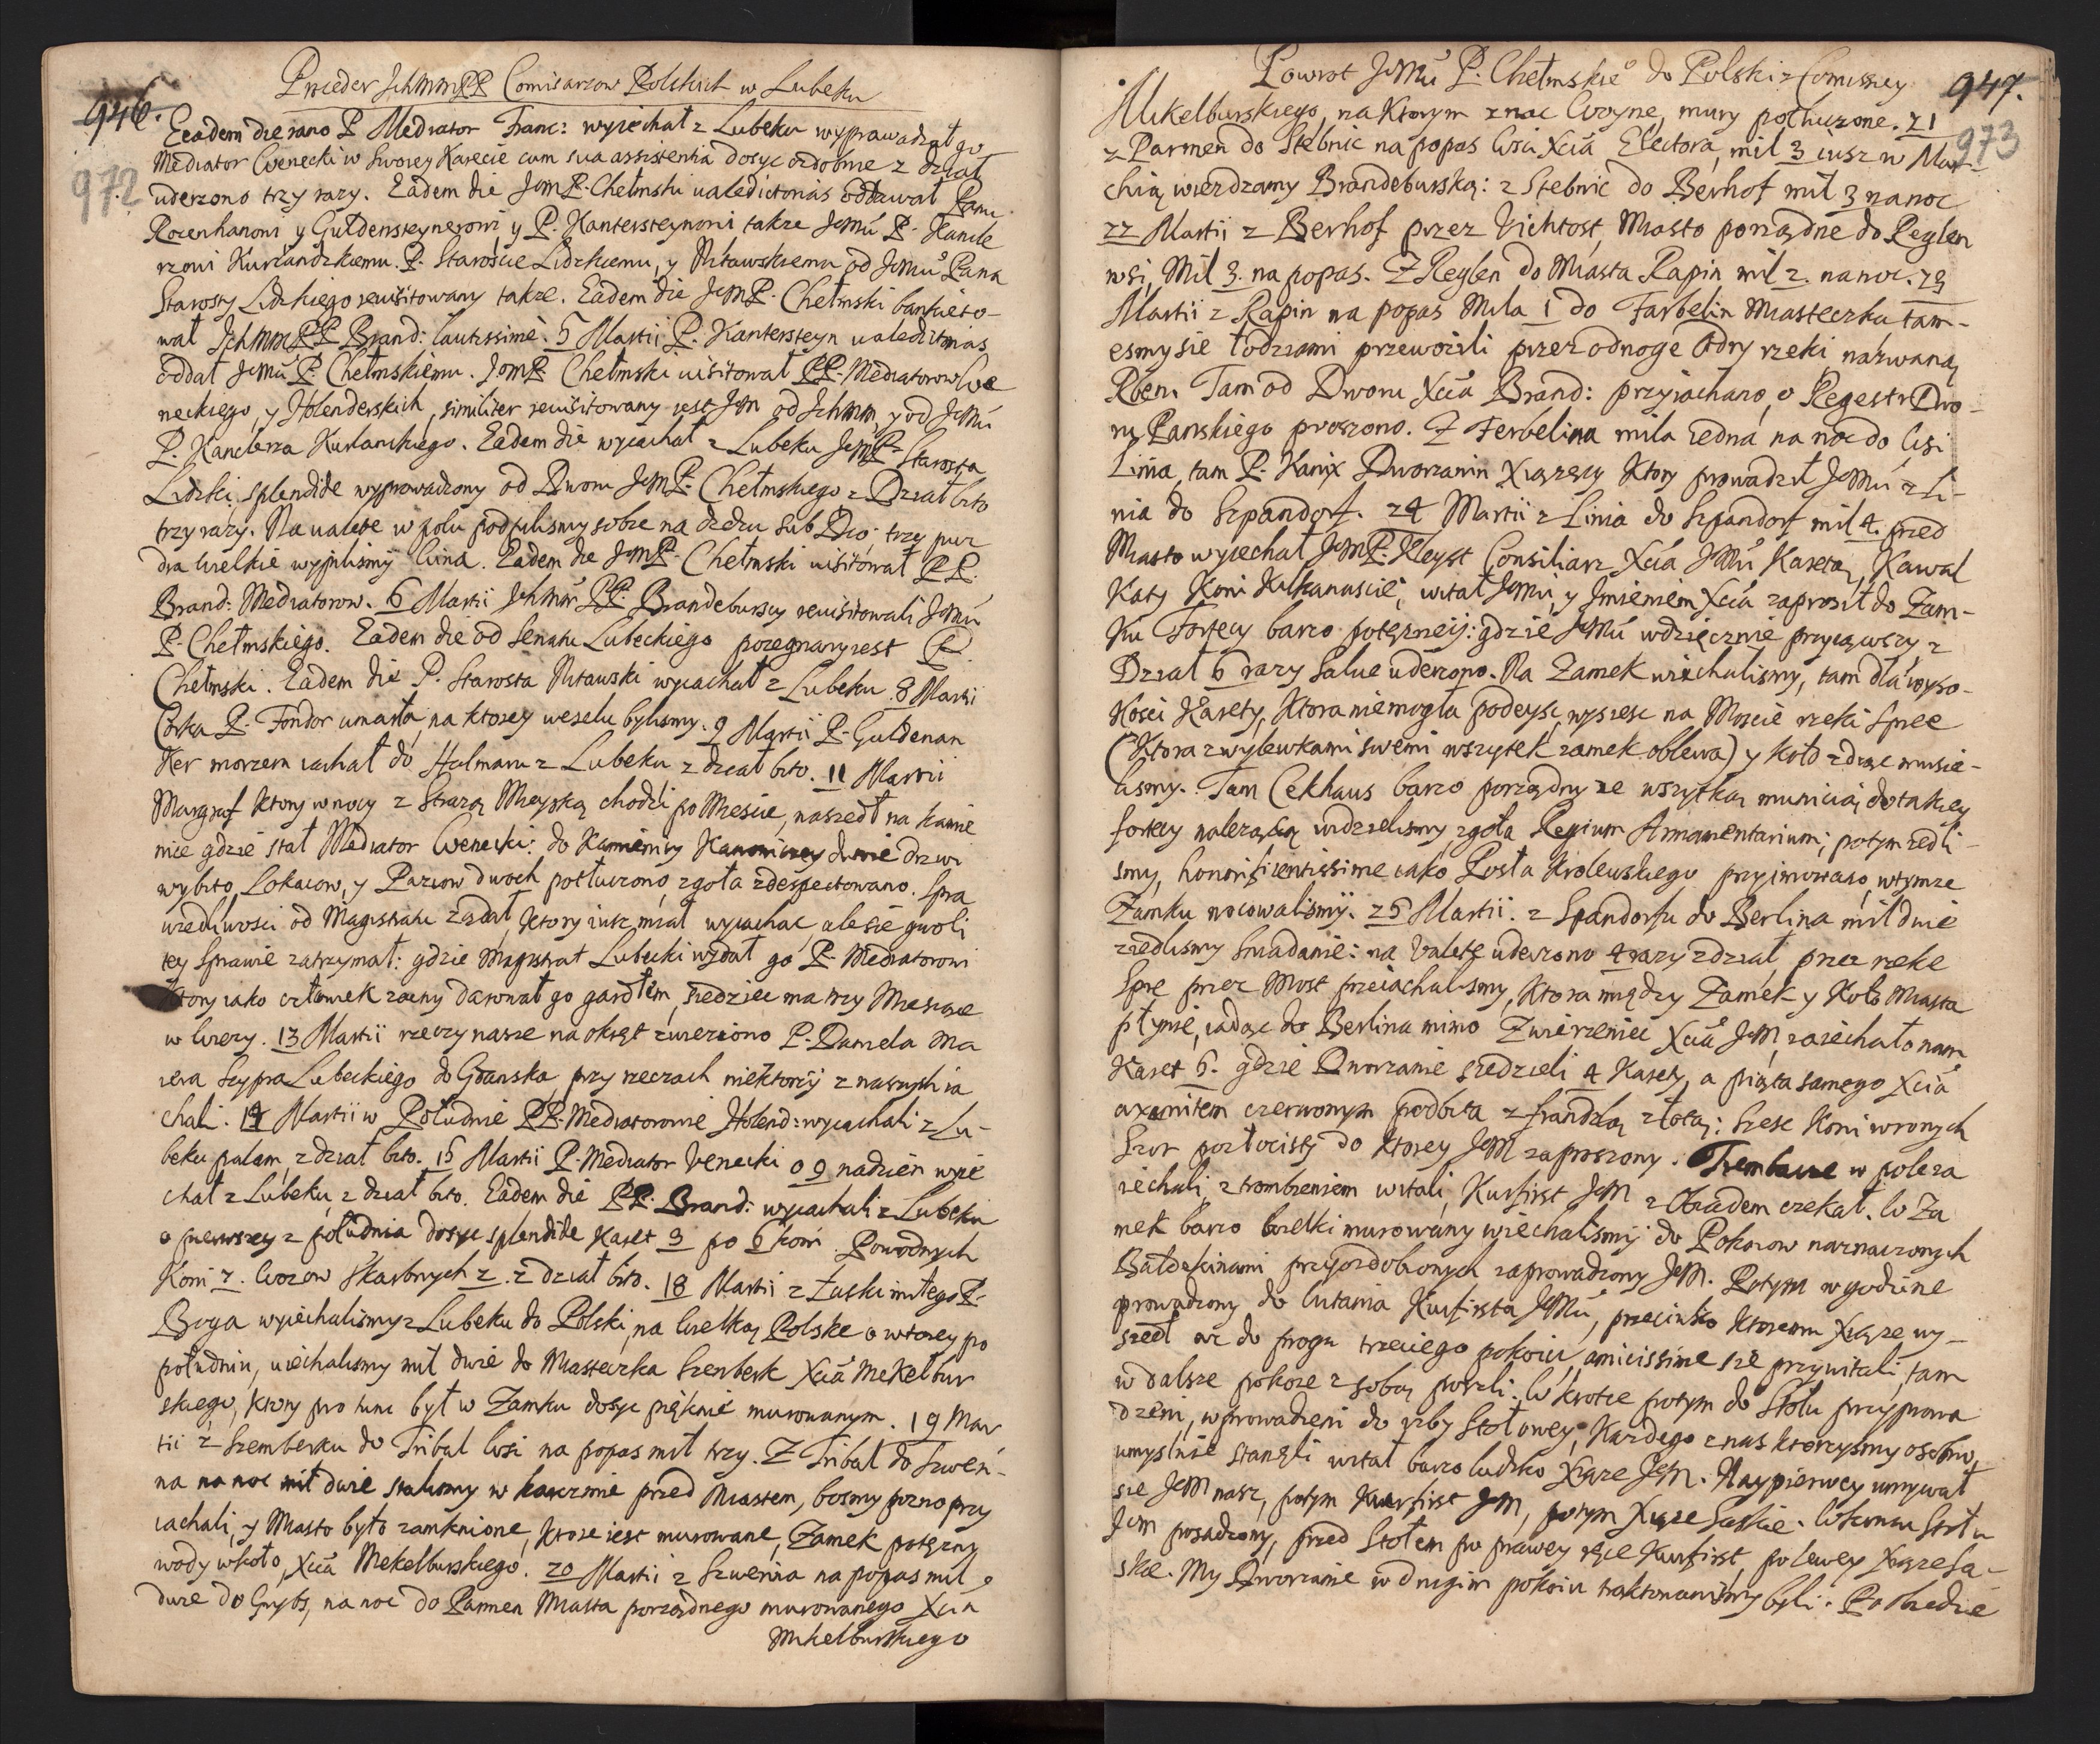 946.
972
Proceder Ichmm PP Comisarzow Polskich w Lubeku
Eadem die rano P Mediator Franc: wyiechał z Lubeku wyprawadzał go
Mediator Wenecki w Swoiey Karecie cum sua assistentia dosyc ozdobnie z dział
uderzono trzy razy. Eadem die JemP. Chełmski ualedictorias oddawał Panu
Rozenhanowi y Guldensteynerowi y P. Kantersteynowi takze Jemu P. Kancle
rzowi Kurlandzkiemu. P. Staroscie Lidzkiemu, y Mitawskiemu od Jemu Pana
Starosty Lidzkiego reuisitowany takze. Eadem die JemP. Chełmski bankieto-
wał Ichmm PP. Brand: lautissimè. 5 Martii P. Kantersteyn ualedictorias
oddał Jemu P. Chełmskiemu. JemP. Chełmski uisitował PP. Mediatorow We
neckiego, y Holenderskich, similiter reuisitowany iest Jem od Ichmm, y od Jemu
P. Kanclerza Kurlanskiego. Eadem die wyiachał z Lubeku JemP. Starosta
Lidzki, splendide wyprowadzony od Dworu JemP. Chełmskiego z Dział bito
trzy razy. Na ualete w polu podpilismy sobie na dedzu sub Dio: trzy puz
dra wielkie wypilismy wina. Eadem die JemP. Chełmski uisitował PP.
Brand: Mediatorow. 6 Martii Ichmm PP. Brandeburscy reuisitowali Jemu
P. Chełmskiego. Eadem die od Senatu Lubeckiego pozegnany iest P.
Chełmski. Eadem die P. Starosta Mitawski wyiachał z Lubeku. 8 Martii
Corka P. Fondor umarła, na ktorey weselu bylismy. 9 Martii P. Guldenan
Ker morzem iachał do Stalmaru z Lubeku z dział bito. 11 Martii
Margraf ktory w nocy z Strazą Mieyską chodzi po Miescie, naszedł na kamie
nice gdzie stał Mediator Wenecki: do Kamienicy dwie drzwi
wybito, Lokaiow, y Paziow dwoch potłuczono, zgoła zdespektowano. Spra
wiedliwosci od Magistratu ządał, ktory iusz miał wyiachac, ale sie gwoli
tey Sprawie zatrzymał: gdzie Magistrat Lubecki wydał go P. Mediatorowi
ktory iako człowiek zacny darował go gardłem, siedziec ma trzy Miesiące
w wiezy. 13 Martii rzeczy nasze na okręt zwieziono P. Daniela Ma
iera Szypra Lubeckiego do Gdanska, przy rzeczach niektorzy z naszych ia
chali. 14 Martii w Południe PP. Mediatorowie Holend: wyiachali z Lu-
beku palam, z dział bito. 15 Martii P. Mediator Venecki o 9 nadzień wyie
chał z Lubeku, z dział bito. Eadem die PP. Brand: wyiachali z Lubeku
o pierwszey z południa dosyc splendide Karet 3 po 6 koni Powodnych
Koni 7. Wozow skarbnych 2. z dział bito. 18 Martii z Łaski miłego P.
Boga wyiechalismy z Lubeku do Polski, na Wielką Polske o wtorey po
południu, uiechalismy mil dwie do Miasteczka Szenberk Xcia Mekelbur
skiego, ktory pro tunc był w Zamku dosyc pięknie murowanym. 19 Mar
tii z Szemberku do Tribal wsi na popas mil trzy. Z Tribal do Szweri-
na na noc mil dwie stalismy w karczmie przed Miastem, bosmy pozno przy
iachali, y Miasto było zamknione, ktore iest murowane, Zamek potęzny
wody wkoło, Xcia Mekelburskiego. 20 Martii z Szwerina na popas mil
dwie do Gryts, na noc do Parmen Miasta porządnego murowanego Xcia
Mikelburskiego
Powrot Jemu P. Chełmskie do Polski z Comissiey
947.
973
Mikelburskiego, na ktorym znac Woyne, mury potłuczone. 21
z Parmen do Stebnic na popas Wsi Xcia Electora, mil 3 iusz w Mar-
chią wierdzamy Brandeburską: z Stebnic do Berhof mil 3 na noc
22 Martii z Berhof przez Vichtost, Miasto porządne do Reglen
wsi, Mil 3. na popas. Z Reglen do Miasta Rapin mil 2. na noc. 23
Martii z Rapin na popas Mila 1 do Farbelin Miasteczka tam-
esmy sie łodziami przewozili przez odnoge Odry rzeki nazwaną
Rben. Tam od Dworu Xcia Brand: przyiachano, o Regestr Dwo-
ru Panskiego proszono. Z Ferbelina mila iedna na noc do Wsi
Linia, tam P. Kanix Dworzanin Xiązęcy ktory prowadził Jemu z Li-
nia do Szpandorf. 24 Martii z Linia do Szpandorf mil 4. przed
Miasto wyiechał JemP. Kleyst Consiliarz Xcia Jemu Karetą, Kawal
katy Koni Kilkanascie, witał Jemu, y Imieniem Xcia zaprosił do Zam-
ku Fortecy barzo potęzney: gdzie Jemu wdzięcznie przyiąwszy, z
Dział 6 razy Salue uderzono. Na Zamek wiechalismy, tam dla wyso-
kosci Karety, ktora niemogła podeysc, wysiesc na Moscie rzeki Spree
(ktora z wylewkami swemi wszytek zamek oblewa) y koło zdiąc musie-
lismy. Tam Cekhaus barzo porządny ze wszytką municią do takiey
fortecy nalezącą widzielismy, zgoła Regium Armamentarium; potym iedli-
smy, honorificentissime iako Posła Krolewskiego przyimowano, w tymze
Zamku nocowalismy. 25 Martii z Spandorfu do Berlina mil dwie
ziedlismy sniadanie: na Valetę uderzono 4 razy z dział, przez rzeke
Spre przez Most przeiachalismy, ktora między Zamek y koło Miasta
płynie, iadąc do Berlina mimo Zwierzeniec Xcia Jem, zaiechało nam
Karet 5. gdzie Dworzanie siedzieli 4 Karety, a piąta samego Xcia
axamitem czerwonym podbita z frandzlą złotą: Szesc Koni wronych
Szor pozłocisty do ktorey Jem zaproszony. Trembacze w pole za
iechali, z trombieniem witali, Kurfirst Jem z Obiadem czekał. W Za
mek barzo wielki murowany wiechalismy do Pokoiow naznaczonych
Baldekinami przyozdobionych zaprowadzony Jem. Potym w godzine
prowadzony do witania Kurfirsta Jemu, przeciwko ktoremu Xiąze wy-
szedł az do progu trzeciego pokoiu, amicissime sie przywitali, tam
w dalsze pokoie z sobą poszli. W krotce potym do Stołu przyprowa
dzeni, wprowadzeni do izby Stołowey, Kazdego z nas ktorzysmy osobno,
umyslnie stanęli witał barzo ludzko Xiąze Jem. Naypierwey umywał
sie Jem nasz, potym Kurfirst Jem, potym Xiąze Saskie. W koncu Stołu
Jem posadzony, przed Stołem po prawey ręce Kurfirst, po lewey Xiąze Sa-
skie. My Dworzanie w drugim pokoiu traktowanismy byli. Po Obiedzie